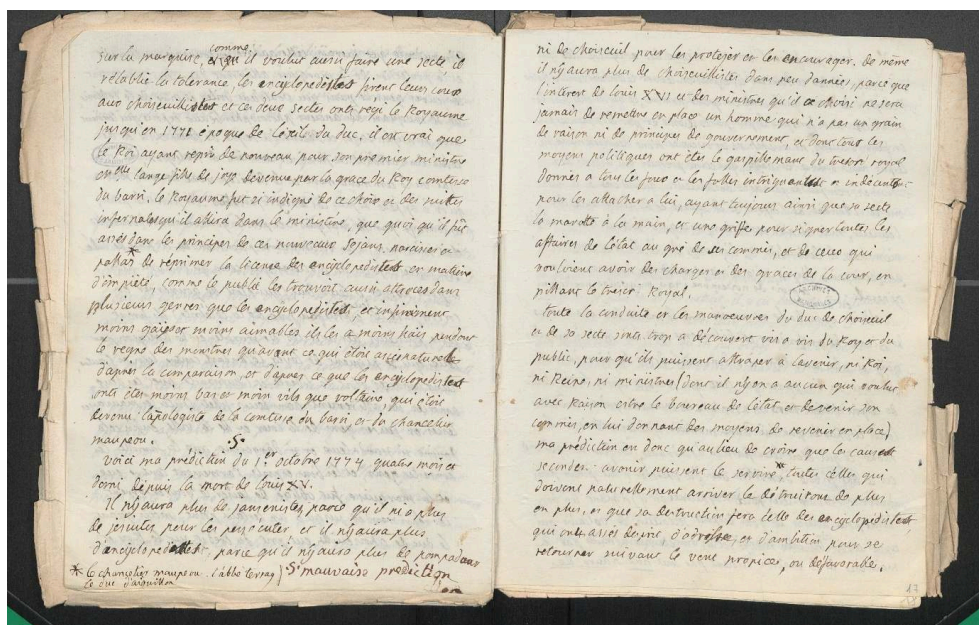 sur la marquise, comme
il voulut aussi faire une secte, il
rétablit la tolerance, les encyclopedistes firent leurs cour
aux choiseuillistes et ces deux sectes onts régi le Royaume
jusqu'en 1771 époque de l'exil du duc. il est vrai que
le Roi ayant repris de nouveau pour son premier ministre
en elle lange fille de joye devenue par la grace du Roy comtesse
du barri, le Royaume fut si indigné de ce choix et des suites
infernales qu'il attira dans le ministère, que quoi qu'il fut
assés dans les principes de ces nouveaux Sejans, narcisses et
pallas * de réprimer la licence des encyclopedistes en matiere
d'impieté, comme le public les trouvoit aussi atroces dans
plusieurs genres que les encyclopedistes, et infiniment
moins gaies et moins aimables ils les a moins haïs pendant
le regne des monstres qu'avant ce qui étoit assés naturelle
d'après la comparaison, et d'après ce que les encyclopedistes
onts étés moins bas et moin vils que voltaire, qui étoit
devenu l'apologiste de la comtesse du barri et du chancelier
maupeou. .S.
voici ma prédiction du 1.er octobre 1774 quatre mois et
demi depuis la mort de Louis XV.
Il n'y aura plus de jansenistes parce qu'il n'i a plus
de jesuites pour les persécuter et il n'y aura plus
d'encyclopedistes, parce qu'il n'y aura plus de pompadour
* le chancelier maupeou. l'abbé terray
le duc d'aiguillon
S. mauvaise prediction
ni de choiseuil pour les protejer et les encourager, de même
il n'y aura plus de choiseuillistes dans peu d'années, parce que
l'interest de louis XVI et des ministres qu'il a choisi ne sera
jamais de remettre en place un homme qui n'a pas un grain
de raison ni de principes de gouvernement, et dont tous les
moyens politiques ont étés le gaspillement du tresor royal
donnés a tous les foux et les folles intrigantes et indécentes
pour les attacher a lui, ayant toujours ainsi que sa secte
la marotte à la main, et une griffe pour signer toutes les
affaires de l'état au gré de ses commis, et de ceux qui
vouloient avoir des charges et des graces de la cour, en
pillant le tresor Royal.
ARCHIVES
toute la conduite et les manoeuvres du duc de choiseuil
et de sa secte sonts trop a découvert vis a vis du Roy et du
public, pour qu'ils puissent attraper à l'avenir, ni Roi,
ni Reine, ni ministres (dont il n'y en a aucun qui voulut
avec Raison estre le boureau de l'état et devenir son
commis, en lui donnant des moyens de revenir en place)
ma prédiction est donc qu'au lieu de croire que les causes
secondes a venir puissent le servire, toutes celles qui
doivent naturellement arriver le détruirons de plus
en plus, et que sa destruction fera celle des encyclopedistes,
qui onts assés d'esprit, d'adresse, et d'ambition pour se
retourner suivant le vent propice, ou défavorable.
17